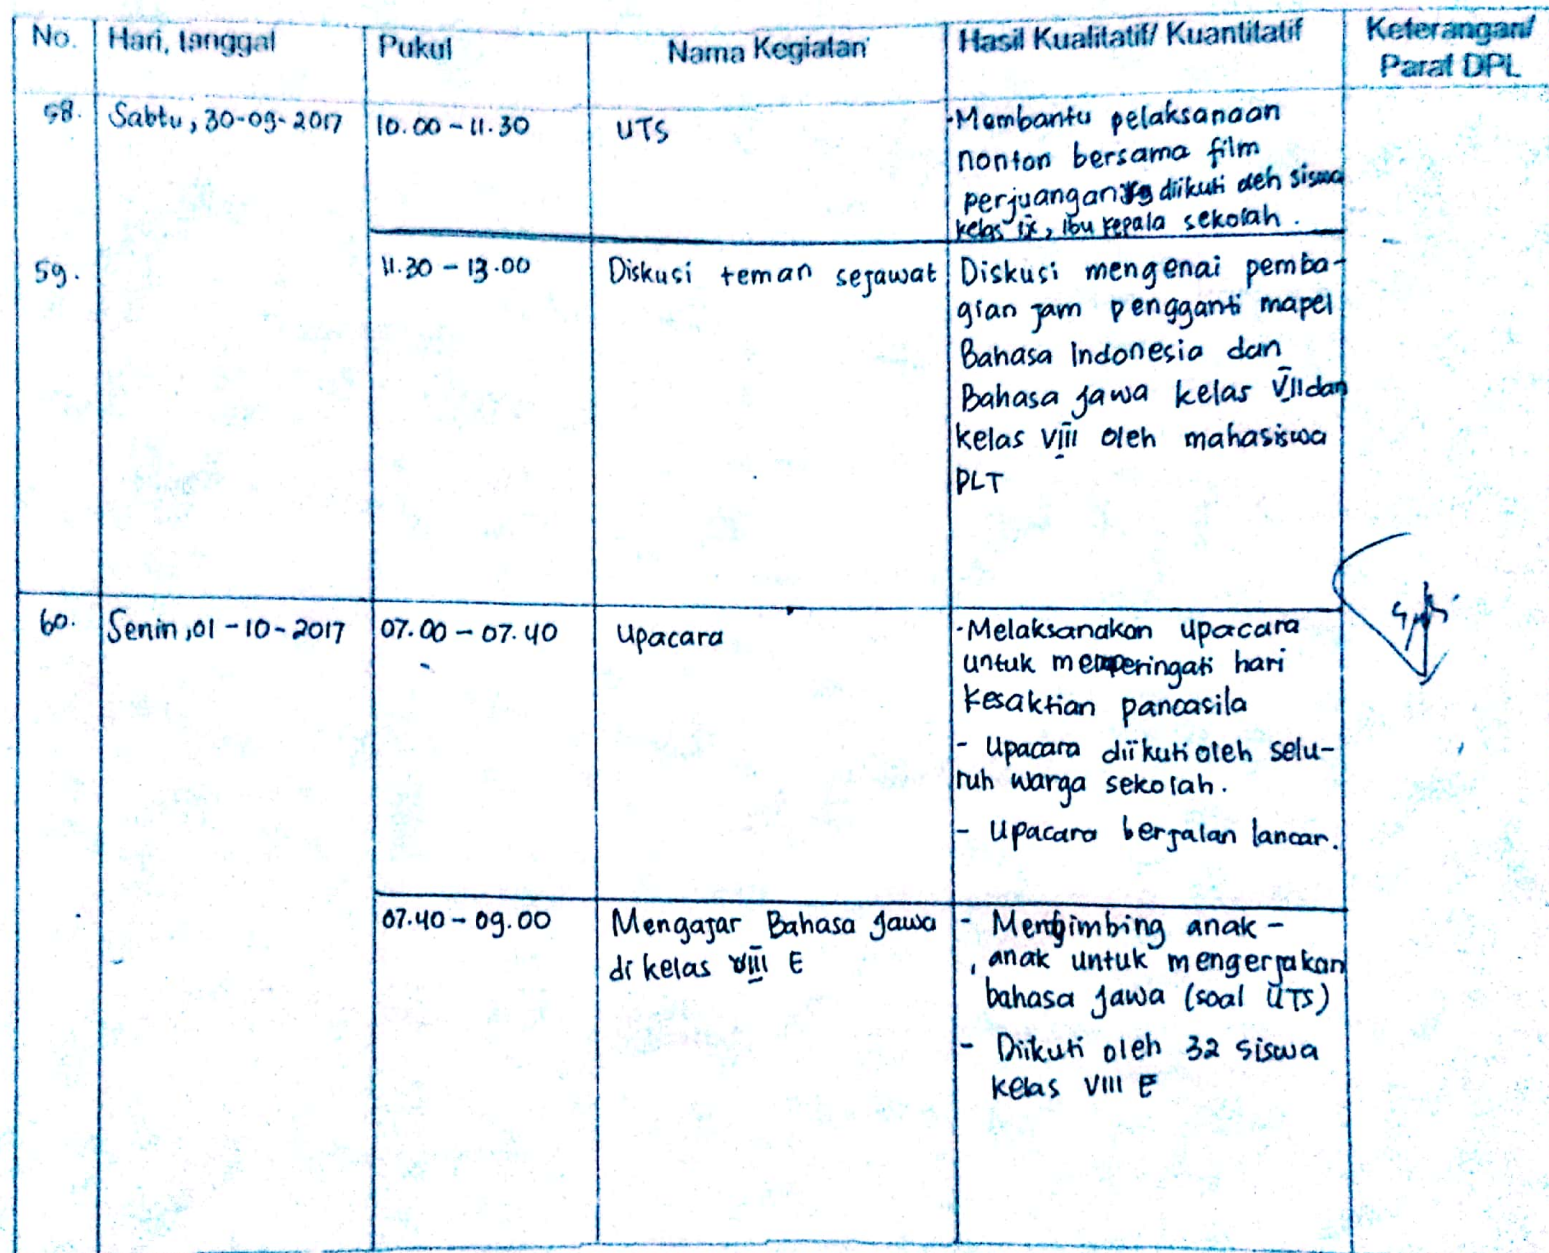 No. Hari, tanggal Pukul Nama Kegiatan Hasil Kualitatif/ Kuantitatif Keterangan/
Paraf DPL
58. Sabtu, 30-09-2017 10.00 - 11.30 UTS - Membantu pelaksanaan
nonton bersama film
perjuangan yg diikuti oleh siswa
kelas IX, ibu kepala sekolah.
59. 11.30 - 13.00 Diskusi teman sejawat Diskusi mengenai pemba-
gian jam pengganti mapel
Bahasa Indonesia dan
Bahasa Jawa kelas VII dan
kelas VIII oleh mahasiswa
PLT
60. Senin, 01-10-2017 07.00 - 07.40 Upacara - Melaksanakan upacara
untuk memperingati hari
kesaktian pancasila
- Upacara diikuti oleh selu-
ruh warga sekolah.
- Upacara berjalan lancar.
07.40 - 09.00 Mengajar Bahasa Jawa - Membimbing anak -
di kelas VIII E anak untuk mengerjakan
bahasa Jawa (soal UTS)
- Diikuti oleh 32 siswa
kelas VIII E